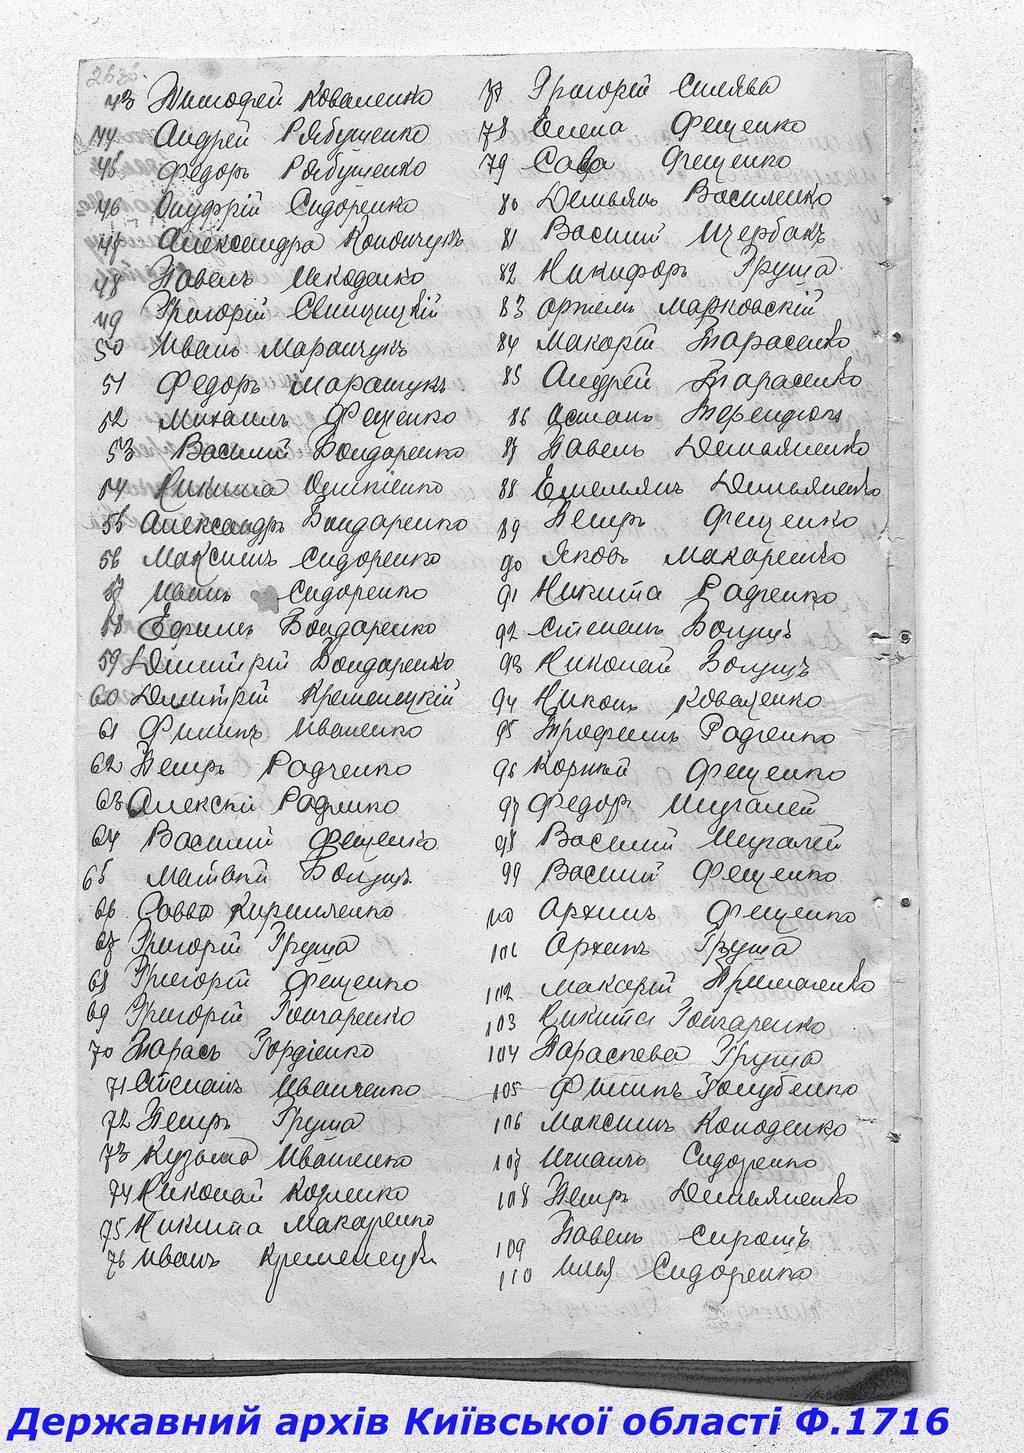 43 Тимофей Коваленко
44 Андрей Рябушенко
45 Федоръ Рябушенко
46 Онуфрій Сидоренко
47 Александра Конончукъ
48 Павелъ
49 Григорій Свинцицкій
50 Иванъ Маранчукъ
51 Федоръ Маранчукъ
52 Михаилъ Фещенко
53 Василий Бондаренко
54 Никита
55 Александръ Бондаренко
56 Максимъ Сидоренко
57 Иванъ Сидоренко
58 Ефимъ Бондаренко
59 Димитрій Бондаренко
60 Димитрій Кременецкій
61 Филипъ Иваненко
62 Петръ Радченко
63 Алексій Радченко
64 Василий Фещенко
65 Матвѣй
66 Савва Кириченко
67 Григорій Груша
68 Григорій Фещенко
69 Григорій Гончаренко
70 Тарасъ Гордіенко
71 Степанъ Иванченко
72 Петръ Груша
73 Кузьма Иваненко
74 Николай
75 Никита Макаренко
76 Иванъ Кременецкій
77 Григорій
78 Елена Фещенко
79 Сава Фещенко
80 Демьянъ Василенко
81 Василий Щербакъ
82 Никифоръ Груша
83 Артемъ Марковскій
84 Макарій Тарасенко
85 Андрей Тарасенко
86
87 Павелъ Демьяненко
88 Емельянъ Демьяненко
89 Петръ Фещенко
90 Яковъ Макаренко
91 Никита Радченко
92 Степанъ
93 Николай
94 Никонъ
95 Трофимъ Радченко
96 Корній Фещенко
97 Федор Шугалей
98 Василий Шугалей
99 Василий Фещенко
100 Архипъ Фещенко
101 Архипъ Груша
102 Макарій
103 Никита Гончаренко
104 Параскева Груша
105 Филипъ Голубенко
106 Максимъ Колоденко
107 Сидоренко
108 Петръ Демьяненко
109 Павелъ
110 Илья Сидоренко
Державний архів Київської області Ф.1716